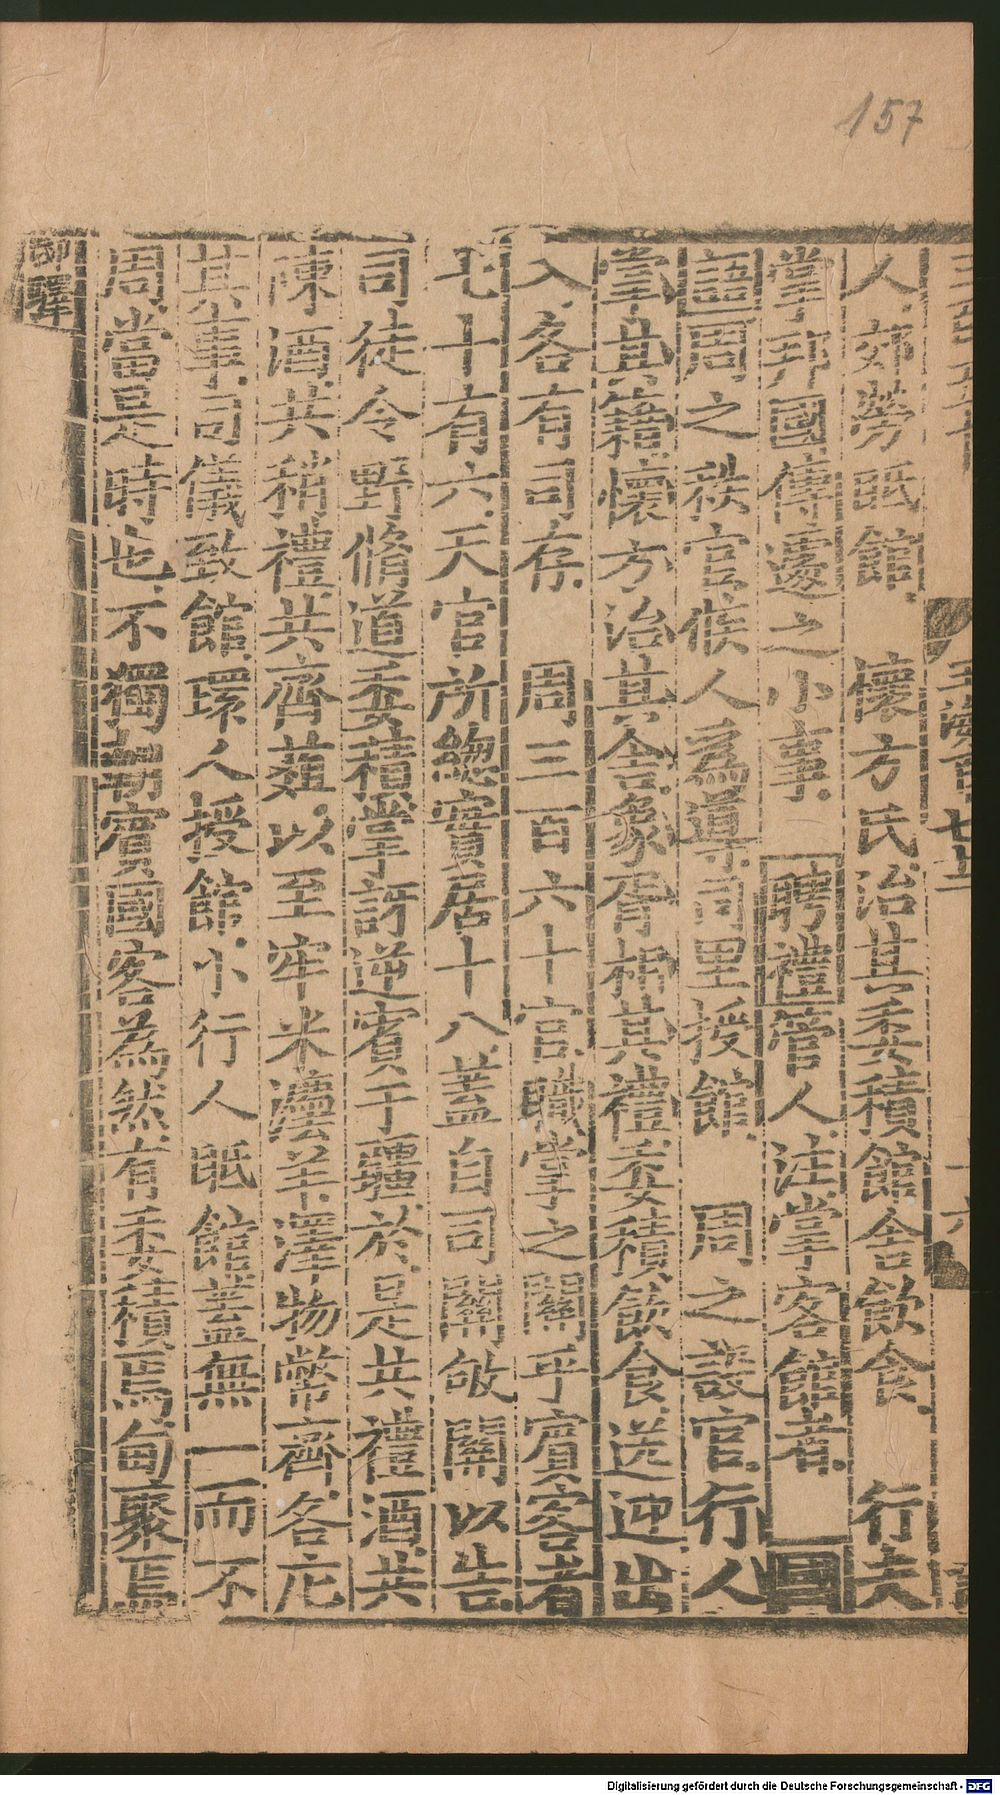 157
人郊勞眂館 懷方氏治其委積館舍飲食 行夫
掌邦國傳遽之小事 聘禮管人注掌客館者 國
語周之秩官候人爲導司里授館 周之設官行人
掌其籍懷方治其舍象胥相其禮委積飲食送迎出
入各有司存 周三百六十官職掌之關乎賓客者
七十有六天官所總實居十八蓋自司關敂關以告
司徒令野脩道委積掌訝逆賓于疆於是共禮酒共
陳酒共稍禮共齊菹以至牢米灋羊澤物幣齎各庀
其事司儀致館環人授館小行人眂館蓋無一而不
周當是時也不獨朝賓國客為然有委積焉甸聚焉
郵驛
Digitalisierung gefördert durch die Deutsche Forschungsgemeinschaft - DFG